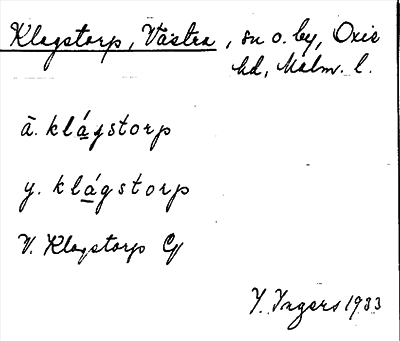 Klagstorp, Västra, sn o. by, Oxie
hd, Malm. l.
ä. klágstorp
y. klágstorp
V. Klagstorp
Ingers 1933